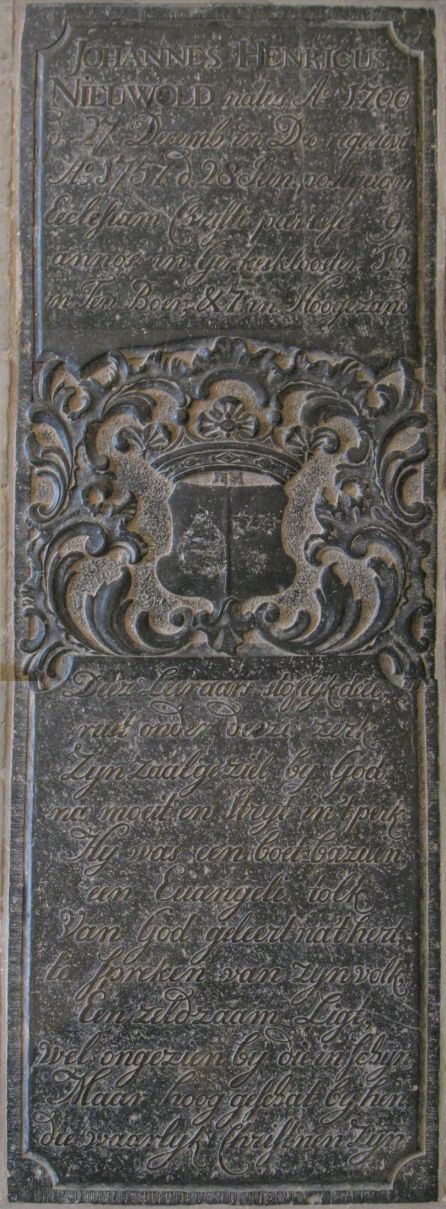 JOHANNES HENRICUS
NIEUWOLD natus Aº. 1700
d. 27. Decemb. in Deo quievit
Aº. 1757. d. 28 Jun. postquam
Ecclesiam Christi pavisset 9
annos in Gerkesklooster 12
in Ten Boer & 7 in Hoogezand
Deez Leeraars stoflyk deel
rust onder deeze zerk
Zyn zaalge ziel by God
na moeit en stryt in 't perk
Hy was een boet-bazuin
een Euangeli tolk
Van God geleert na 't hert
te spreken van zyn volk
Een zeldzaam Ligt
wel ongezien by die in schyn
Maar hoog geschat by hen
die waarlyk Christnen zyn